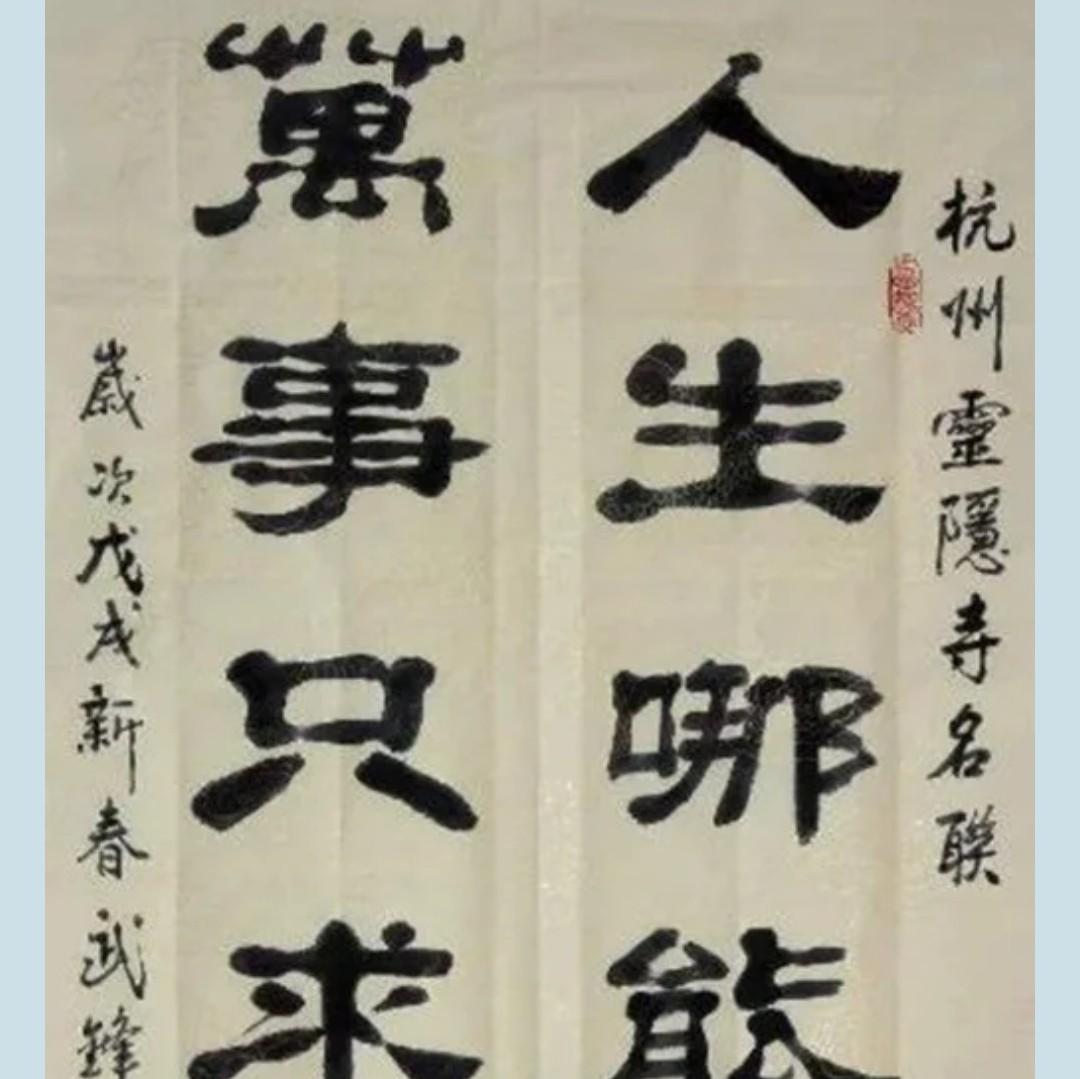 杭州靈隱寺名聯
人生哪能
萬事只求
歲次戊戌新春武鋒